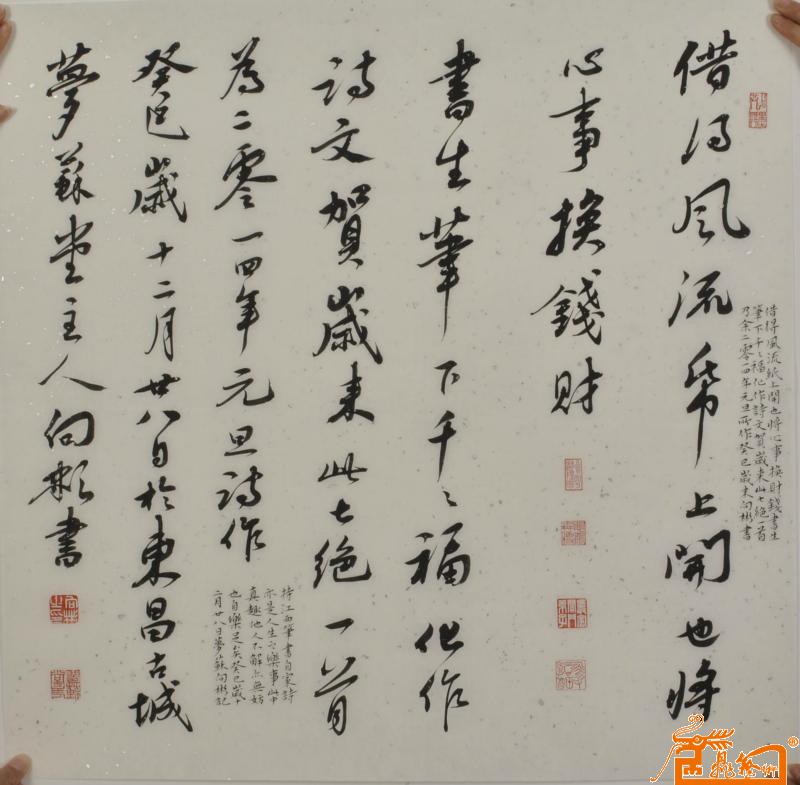 借得风流纸上開也將
心事換錢財
書生筆下千々福化作
詩文賀歲来此七絕一首
為二零一四年元旦詩作
癸巳歲十二月廿八日於東昌古城
夢蘇堂主人向彬書
借得風流紙上開也將心事換財錢書生
筆下千々福化作詩文賀歲来此七絕一首
乃余二零一四年元旦所作癸巳歲末向彬書
持江南筆書自家詩
亦是人生之樂事此中
真趣他人不解亦無妨
也自樂足矣癸巳歲十
二月廿八日夢蘇向彬記